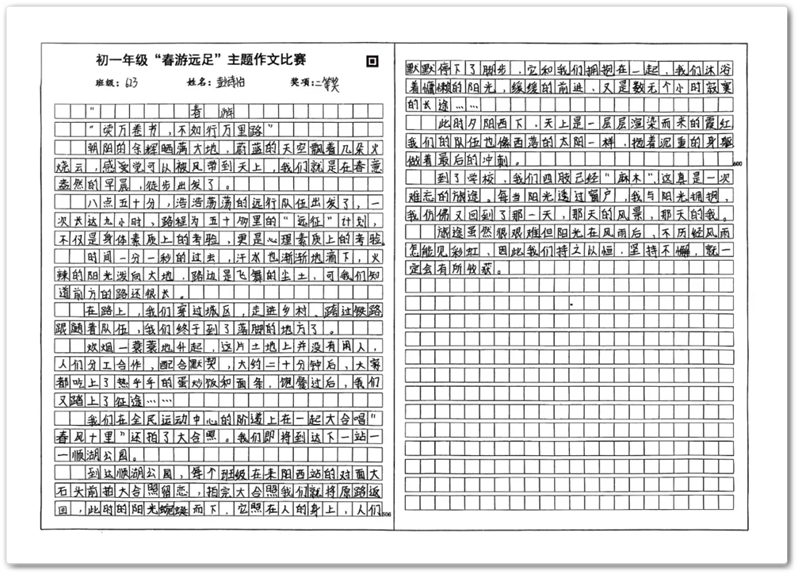 初一年级“春游远足”主题作文比赛
班级：623 姓名： 奖项：二等奖
“ 春游
“读万卷书，不如行万里路”
朝阳的余辉晒满大地，蔚蓝的天空飘着几朵火
烧云，感觉可以被风带到天上，我们就是在春意
盎然的早晨，徒步出发了。
八点五十分，浩浩荡荡的远行队伍出发了，一
次长达九小时、路程为五十多里的“远征”计划，
不仅是身体素质上的考验，更是心理素质上的考验。
时间一分一秒的过去，汗水也渐渐地滴下，火
辣的阳光泼向大地，路边是飞舞的尘土，可我们知
道前方的路还很长。
在路上，我们穿过城区，走进乡村，踏过铁路
跟随着队伍，我们终于到了落脚的地方了。
炊烟一袅袅地升起，这片土地上并没有闲人，
人们分工合作，配合默契，大约二十分钟后，大家
都吃上了热乎乎的蛋炒饭和面条，饱餐过后，我们
又踏上了征途……
我们在全民运动中心的阶道上在一起大合唱“
春风十里”还拍了大合照。我们即将到达下一站一
一顺湖公园。
到达顺湖公园，每个班级在耒阳西站的对面大
石头前拍大合照留恋，拍完大合照我们就将原路返
回，此时的阳光蜿蜒而下，它照在人的身上，人们
默默停下了脚步，它和我们拥抱在一起，我们沐浴
着慵懒的阳光，缓缓的前进，又是数无个小时寂寞
的长途……
此时夕阳西下，天上是一层层渲染而来的霞红
我们的队伍也像西落的太阳一样，拖着沉重的身躯
做着最后的冲刺。
到了学校，我们四肢已经“麻木”，这真是一次
难忘的旅途。每当阳光透过窗户，我与阳光拥抱，
我仿佛又回到了那一天，那天的风景，那天的我。
旅途虽然很艰难但阳光在风雨后，不历经风雨
怎能见彩虹，因此我们持之以恒，坚持不懈，就一
定会有所收获。